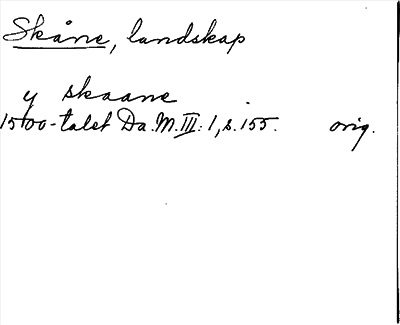 Skåne, landskap
y skaane
1500-talet Da.M.III:1, s.155. orig.